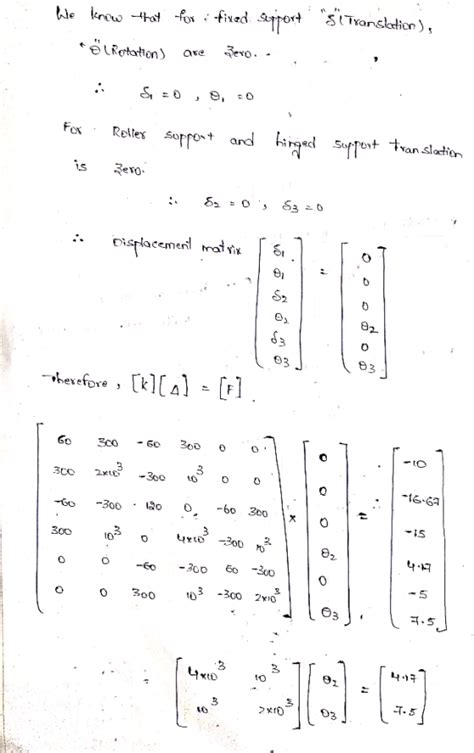 We know that for : fixed support "δ"(Translation),
"θ"(Rotation) are zero.
∴ δ1 = 0 , θ1 = 0
For Roller support and hinged support translation
is zero.
∴ δ2 = 0 , δ3 = 0
∴ Displacement matrix [δ1 θ1 δ2 θ2 δ3 θ3] = [0 0 0 θ2 0 θ3]
Therefore, [K][Δ] = [F].
60 300 -60 300 0 0 0 -10
300 2×10³ -300 10³ 0 0 0 -16.67
-60 -300 120 0 -60 300 × 0 = ∴ -15
300 10³ 0 4×10³ -300 10³ θ2 4.17
0 0 -60 -300 60 -300 0 -5
0 0 300 10³ -300 2×10³ θ3 7.5
= [4×10³ 10³] [θ2] = [4.17]
[10³ 2×10³] [θ3] [7.5]